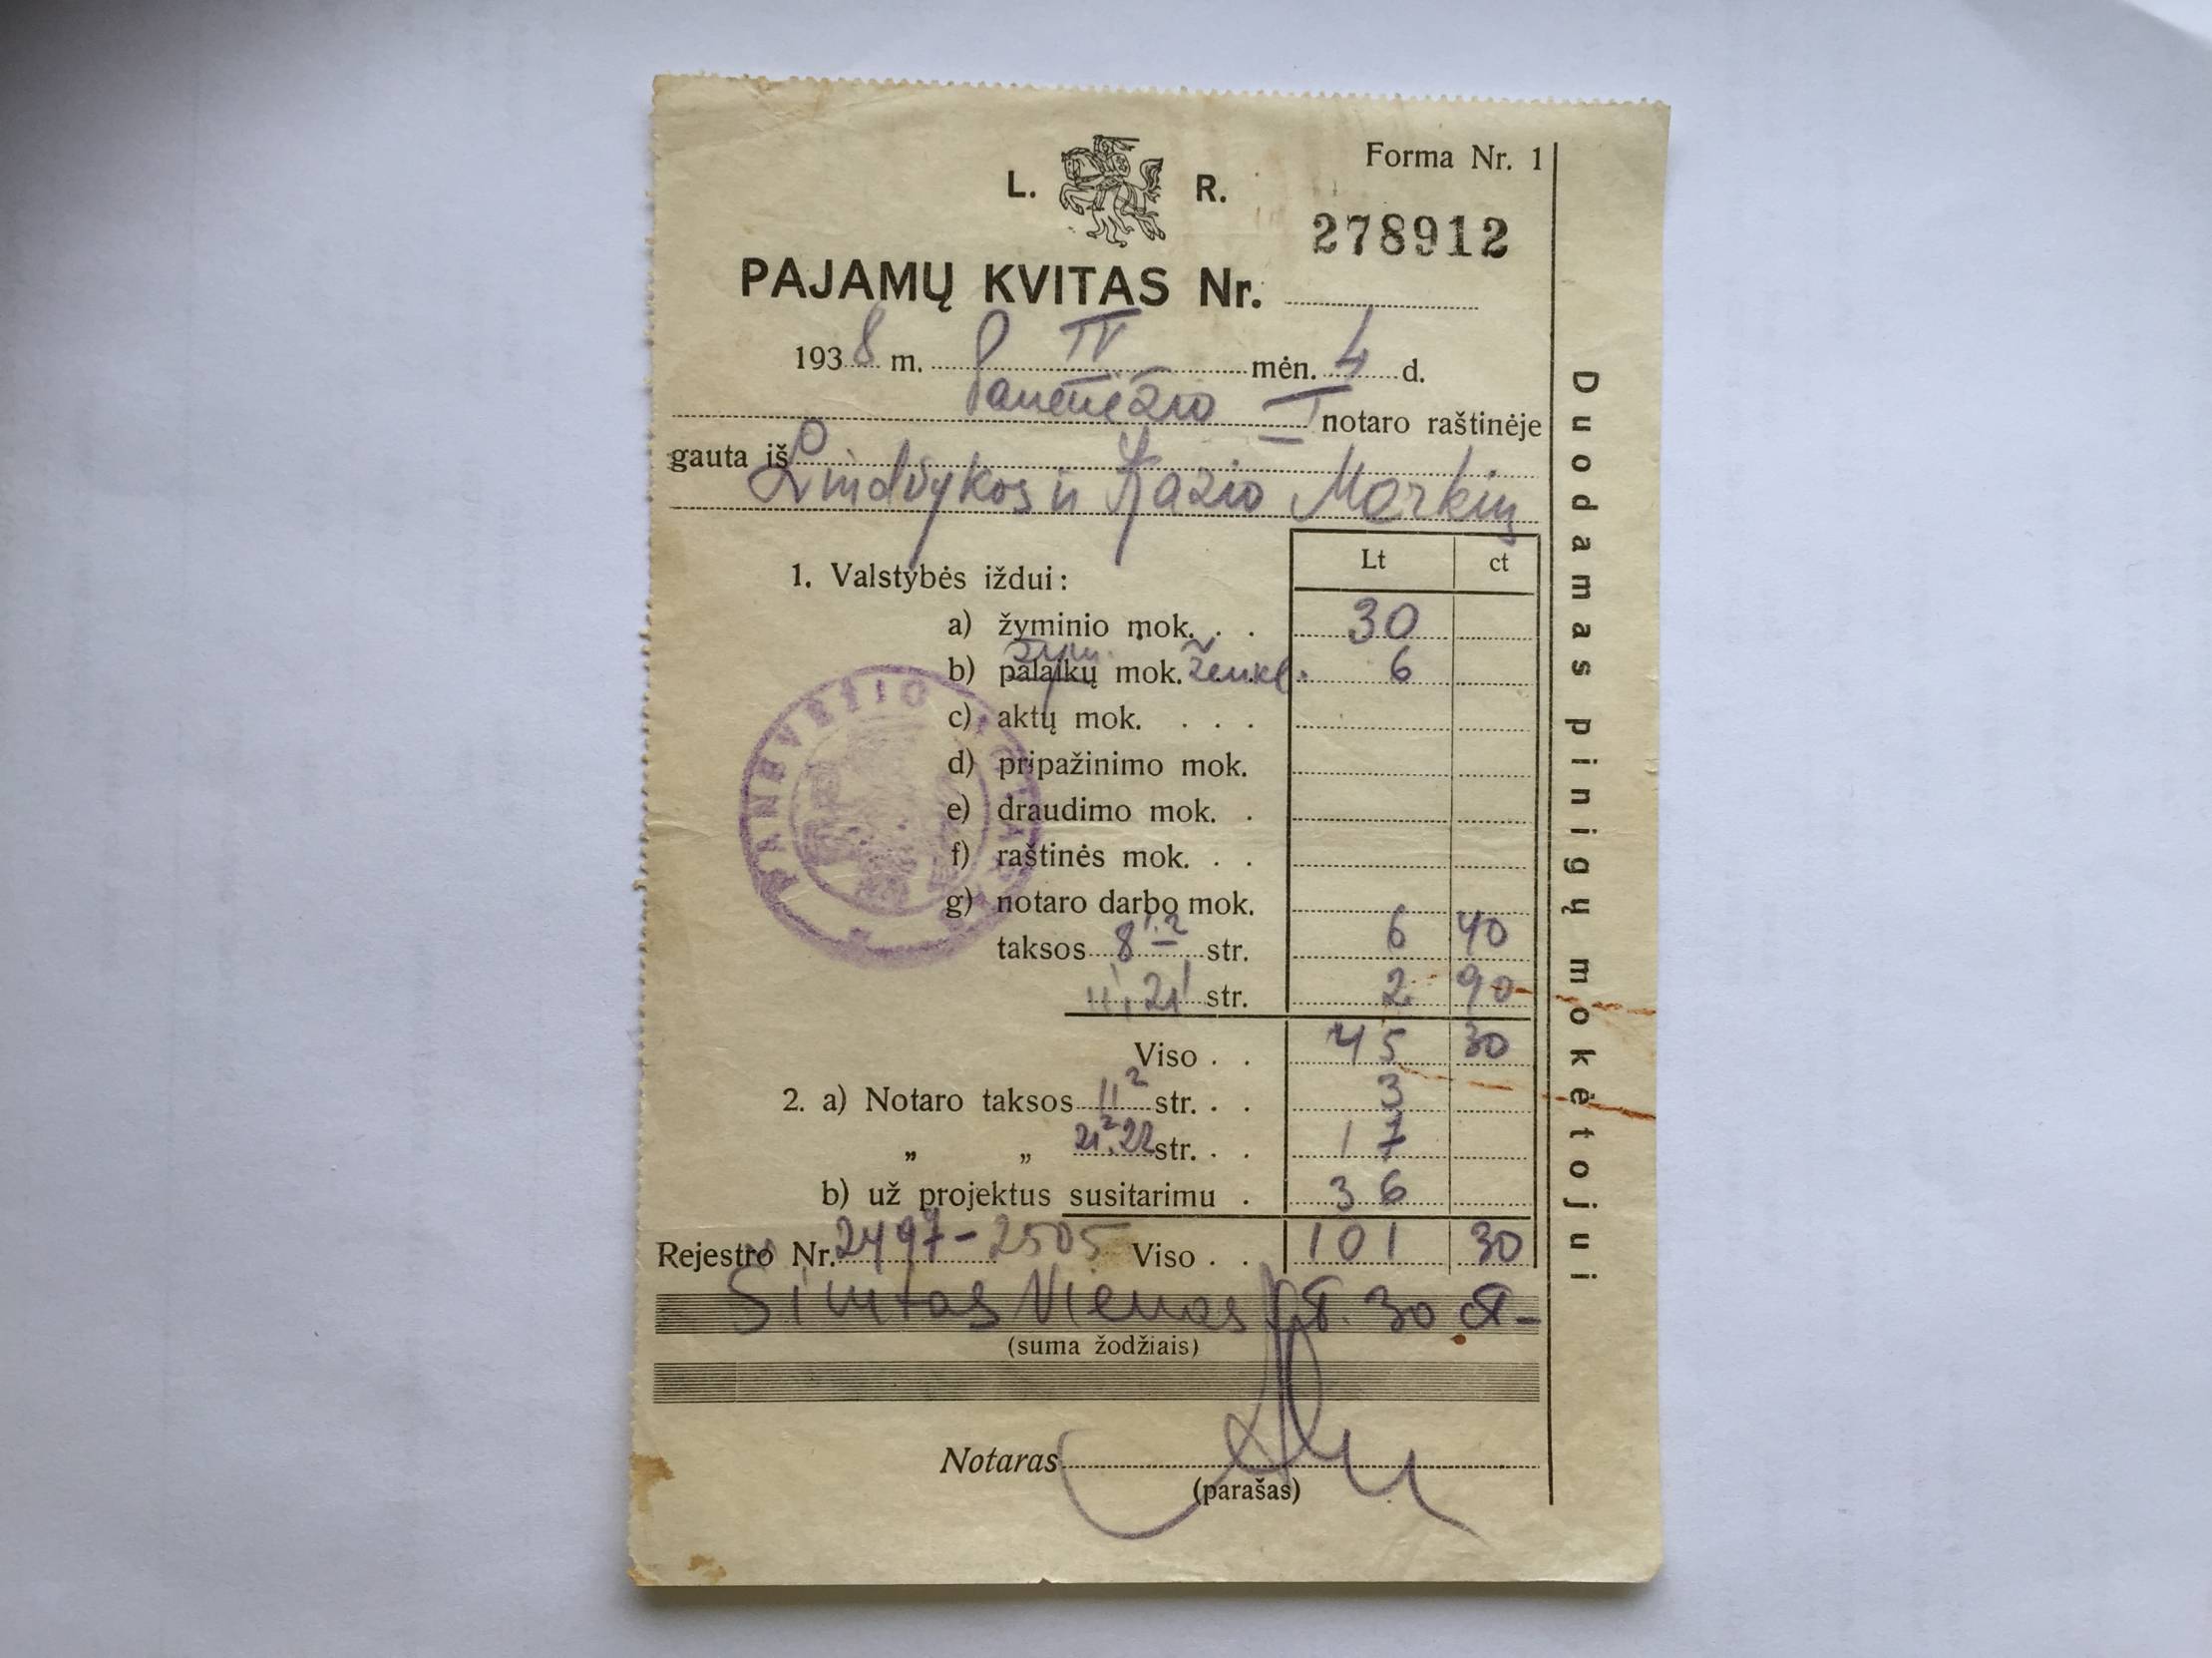 Forma Nr. 1
L. R.
278912
PAJAMŲ KVITAS Nr.
1938 m. IV mėn. 4 d.
Panevėžio I notaro raštinėje
gauta iš
Liudvikos ir Kazio Markių
Lt ct
1. Valstybės iždui:
a) žyminio mok. . . 30
b) palaikų mok. žym. ženkl. 6
c) aktų mok. . . .
d) pripažinimo mok.
e) draudimo mok. .
f) raštinės mok. . .
g) notaro darbo mok.
taksos 8 1.2 str. 6 40
11, 21 str. 2 90
Viso . . 45 30
2. a) Notaro taksos 11 2 str. . . 3
„ „ 21 2, 22 str. . . 17
b) už projektus susitarimu . 36
Rejestro Nr. 2497-2505 Viso . . 101 30
Šimtas Vienas Lt. 30 ct-
(suma žodžiais)
Notaras
(parašas)
Duodamas pinigų mokėtojui
PANEVĖŽIO